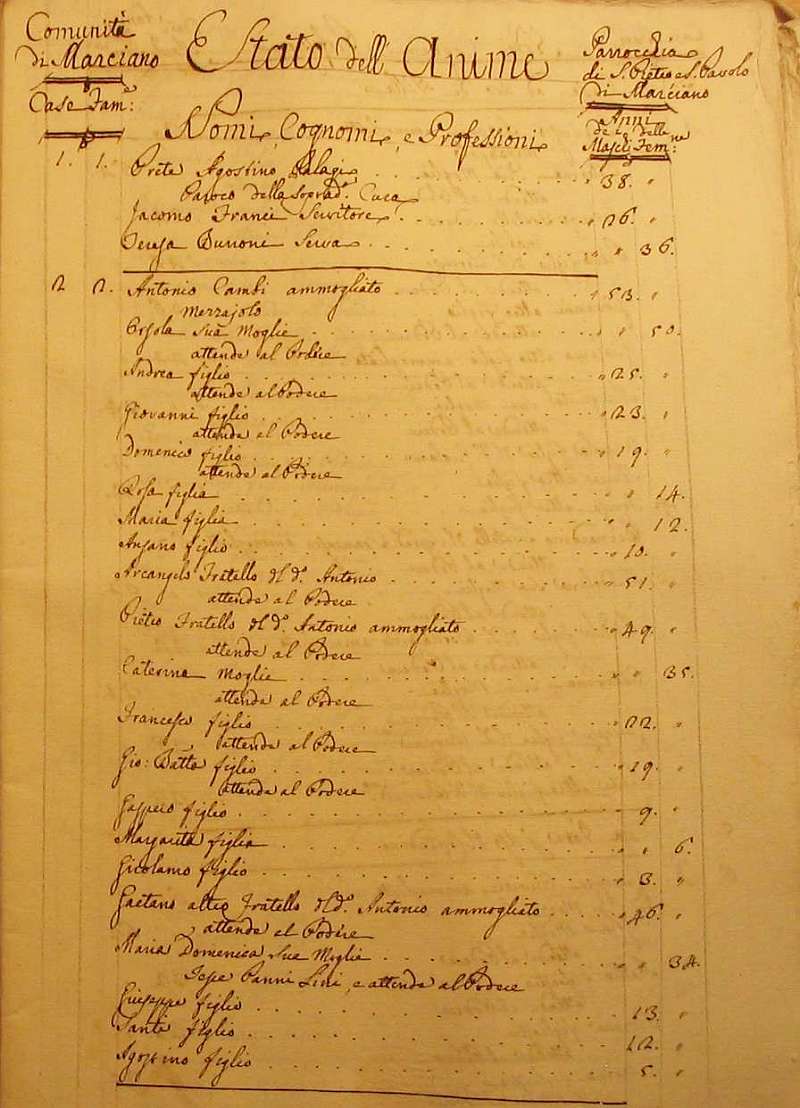 Comunità
di Marciano
Estato dell' Anime
Parrocchia
di S. Pietro e S. Pavolo
di Marciano
Case Fam:
Anni
de della
Maschi Fem:ne
Nomi, Cognomi, e Professioni
1. 1. Prete Agostino Palagi 38. "
Paroco della Soprad.a Cura
Jacomo Franci Servitore 26. "
Teresa Burroni Serva " 36.
2 2. Antonio Cambi ammogliato 53. "
Mezzajolo
Orsola Sua Moglie " 50.
attende al Podere
Andrea figlio 25. "
attende al Podere
Giovanni figlio 23. "
attende al Podere
Domenico figlio 19. "
attende al Podere
Rosa figlia " 14.
Maria figlia " 12.
Ansano figlio 10. "
Arcangelo Fratello del d.o Antonio 51. "
attende al Podere
Pietro Fratello del d.o Antonio ammogliato 49. "
attende al Podere
Caterina Moglie " 35.
attende al Podere
Francesco figlio 22. "
attende al Podere
Gio: Batta figlio 19. "
attende al Podere
Gaspero figlio 9. "
Margarita figlia " 6.
Girolamo figlio 3. "
Gaetano altro Fratello del d.o Antonio ammogliato 46. "
attende al Podere
Maria Domenica Sua Moglie " 34.
Tesse Panni Lini, e attende al Podere
Giuseppe figlio 13. "
Santi figlio 12. "
Agostino figlio 5. "